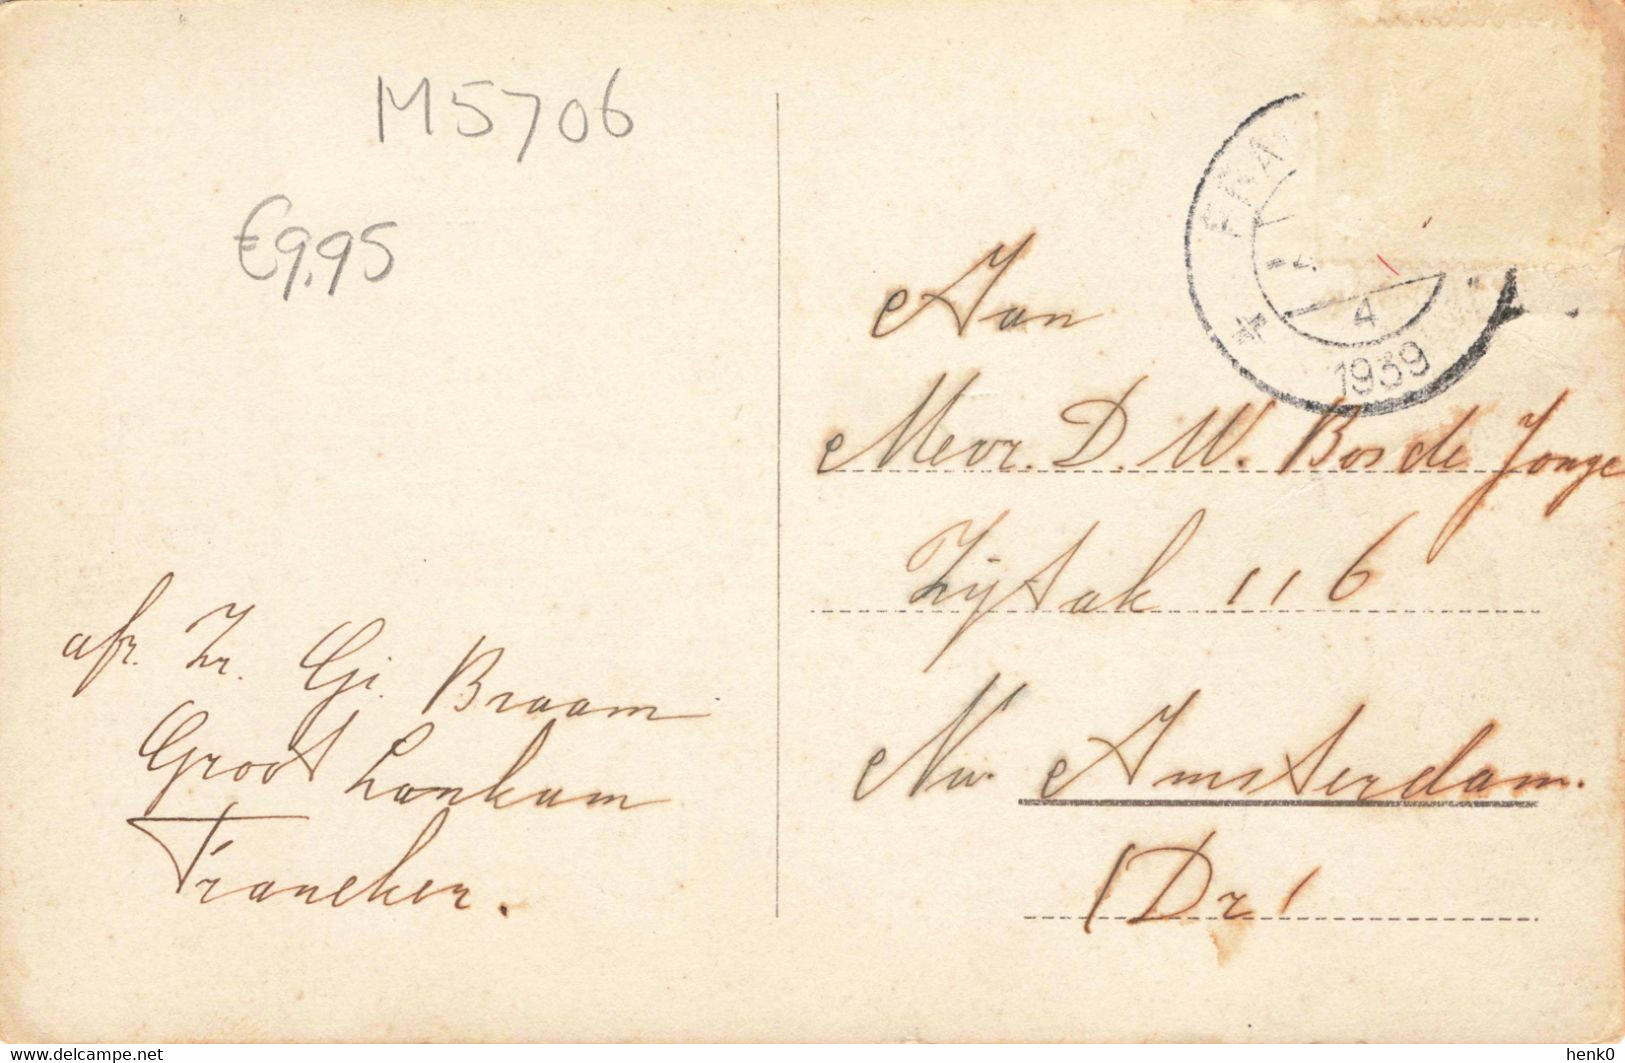 M5706
€9,95
afz. Zr. Gr. Braam
Groot Lankum
Franeker.
FRA
4
1939
Aan
Mevr. D. W. Bos de Jonge
Zijtak 116
Nw. Amsterdam.
(Dr)
www.delcampe.net
henk0